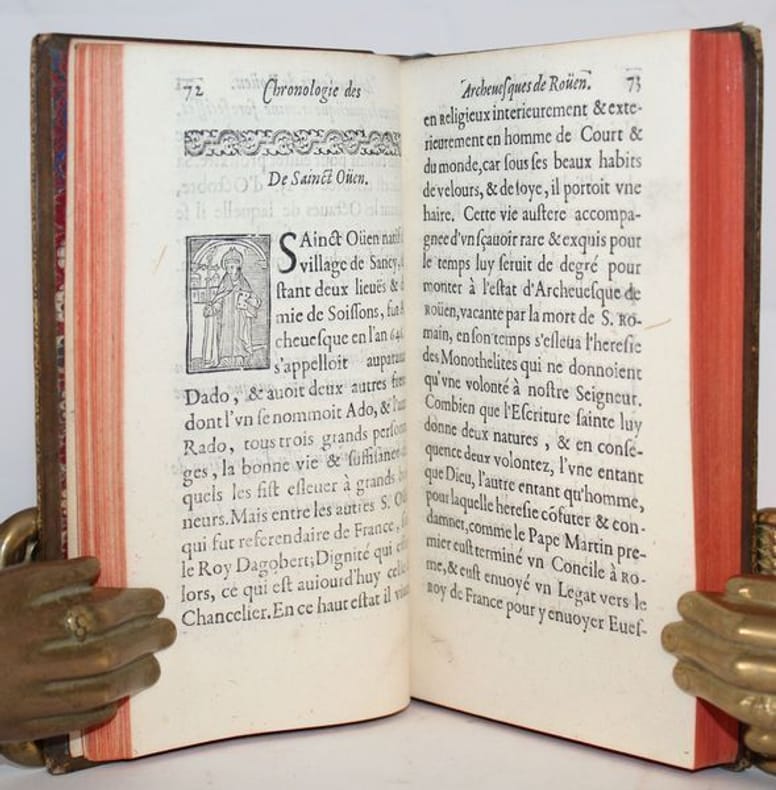 72 Chronologie des
De Sainct Oüen.
SAinct Oüen natif
village de Sancy,
stant deux lieuës &
mie de Soissons, fut
cheuesque en l'an 646
s'appelloit
Dado, & auoit deux autres
dont l'vn se nommoit Ado, &
Rado, tous trois grands
ges, la bonne vie &
quels les fist esleuer à grands
neurs. Mais entre les autres S.
qui fut referendaire de France,
le Roy Dagobert; Dignité qui
lors, ce qui est auiourd'huy
Chancelier. En ce haut estat il
Archeuesques de Roüen. 73
en Religieux interieurement & exte-
rieurement en homme de Court &
du monde, car sous ses beaux habits
de velours, & de soye, il portoit vne
haire. Cette vie austere accompa-
gnee d'vn sçauoir rare & exquis pour
le temps luy seruit de degré pour
monter à l'estat d'Archeuesque de
Roüen, vacante par la mort de S. Ro-
main, en son temps s'esleua l'heresie
des Monothelites qui ne donnoient
qu'vne volonté à nostre Seigneur.
Combien que l'Escriture sainte luy
donne deux natures, & en consé-
quence deux volontez, l'vne entant
que Dieu, l'autre entant qu'homme,
pour laquelle heresie cõfuter & con-
damner, comme le Pape Martin pre-
mier eust terminé vn Concile à Ro-
me, & eust enuoyé vn Legat vers le
Roy de France pour y enuoyer Eues-